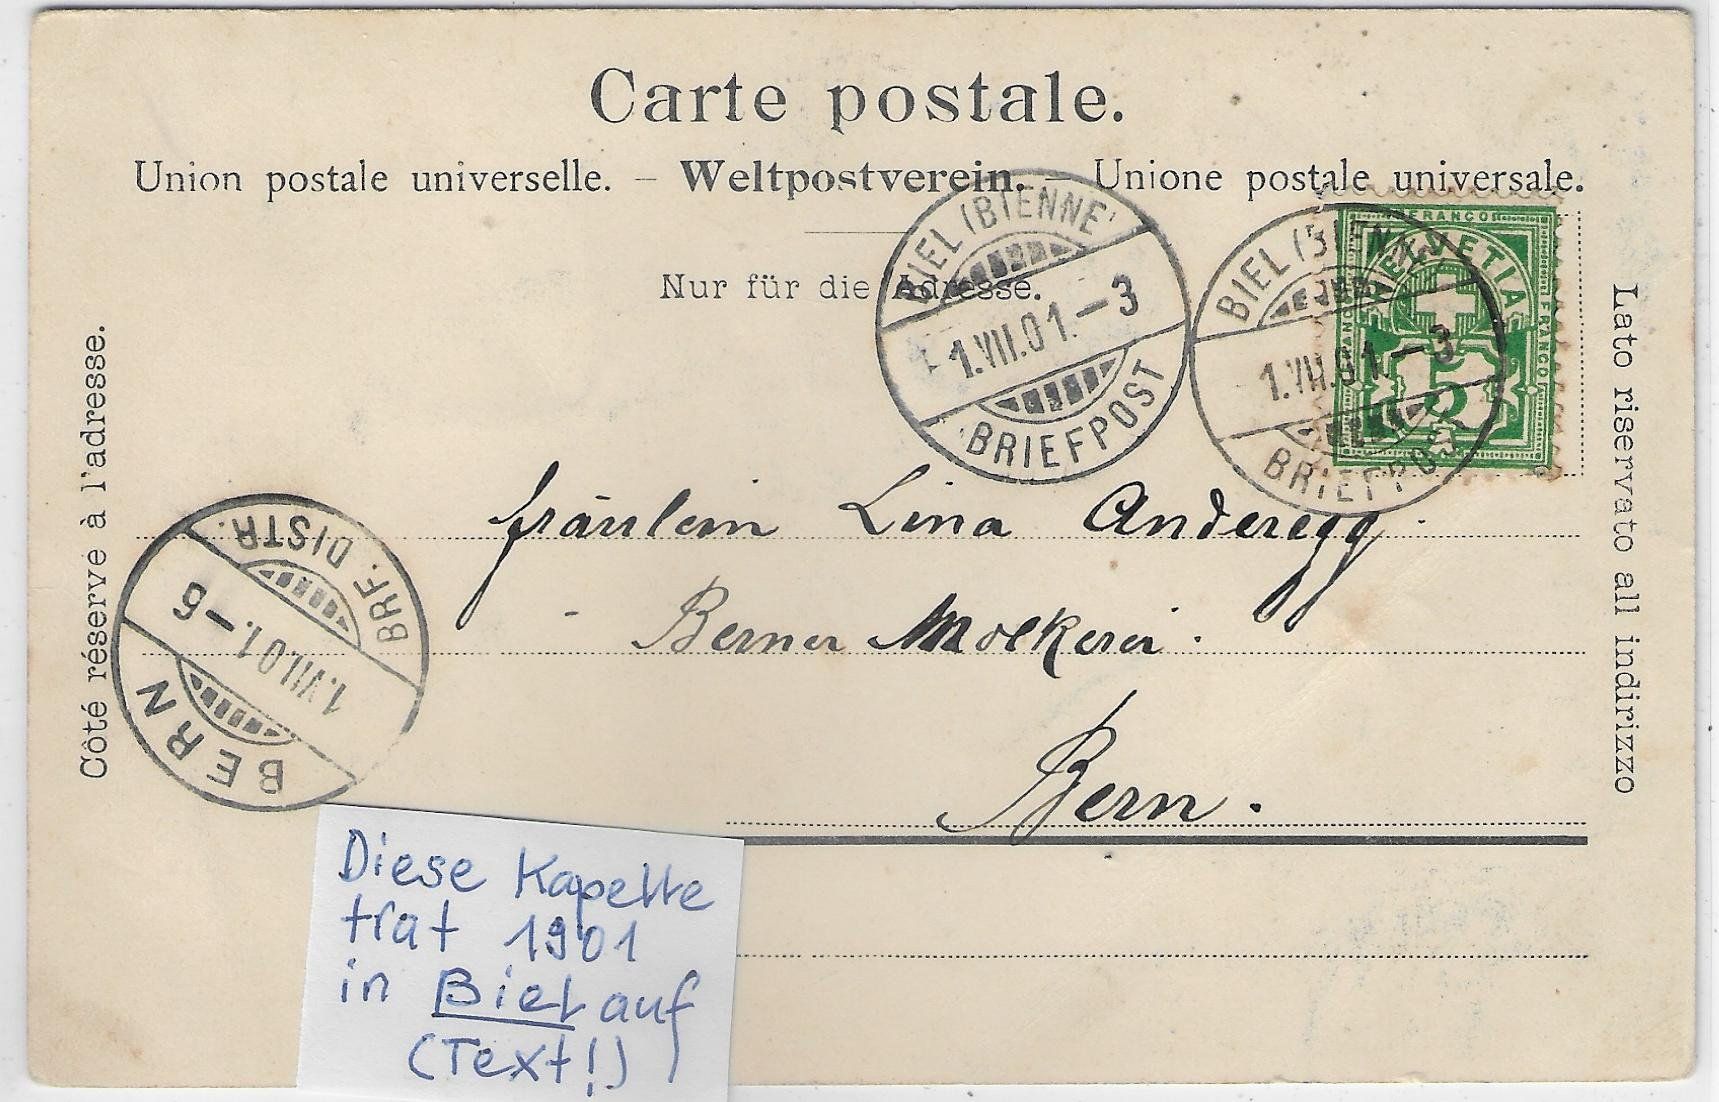 Carte postale.
Union postale universelle. – Weltpostverein. – Unione postale universale.
Nur für die Adresse.
Côté réservé à l'adresse.
Lato riservato all indirizzo
BIEL (BIENNE)
1.VII.01.–3
BRIEFPOST
BIEL (BIENNE)
1.VII.01.–3
BRIEFPOST
FRANCO
HELVETIA
FRANCO
FRANCO
5
BRF. DISTR.
1.VII.01.–6
BERN
Fräulein Lina Anderegg.
Berner Molkerei.
Bern.
Diese Kapelle
trat 1901
in Biel auf
(Text!)